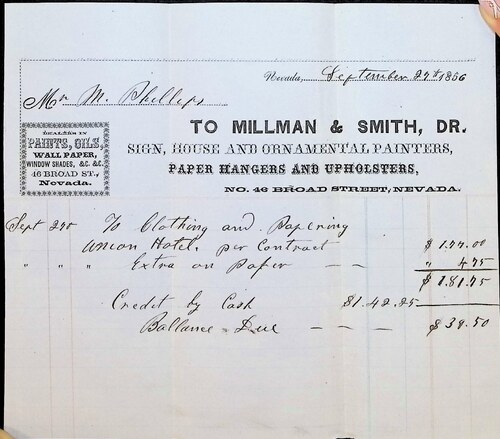 Nevada, September 27th 1866
Mr M. Phillips
DEALERS IN
PAINTS, OILS,
WALL PAPER,
WINDOW SHADES, &C. &C.
46 BROAD ST.,
Nevada.
TO MILLMAN & SMITH, DR.
SIGN, HOUSE AND ORNAMENTAL PAINTERS,
PAPER HANGERS AND UPHOLSTERS,
NO. 46 BROAD STREET, NEVADA.
Sept To Clothing and Papering
Union Hotel, per Contract $1.77.00
" " " Extra on Paper — — " 4.75
$1.81.75
Credit by Cash $1.42.25
Ballance Due — — — $39.50